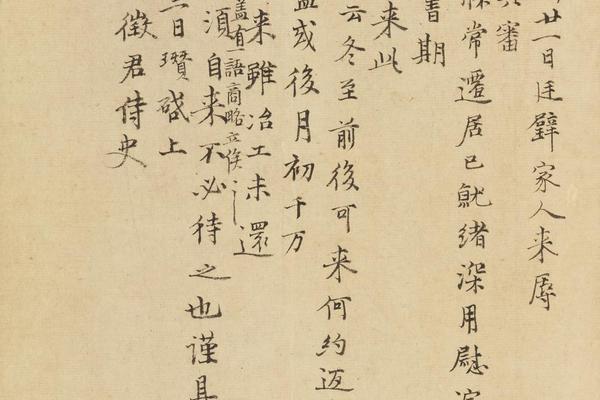 廿一日廷璧家人来辱
審
常遷居已就緒深用慰
書期
来此
云冬至前後可来何約
或後月初千万
来雖冶工未還
蓋有一語商略立俟
須自来不必待之也謹具
日瓚啓上
徵君侍史